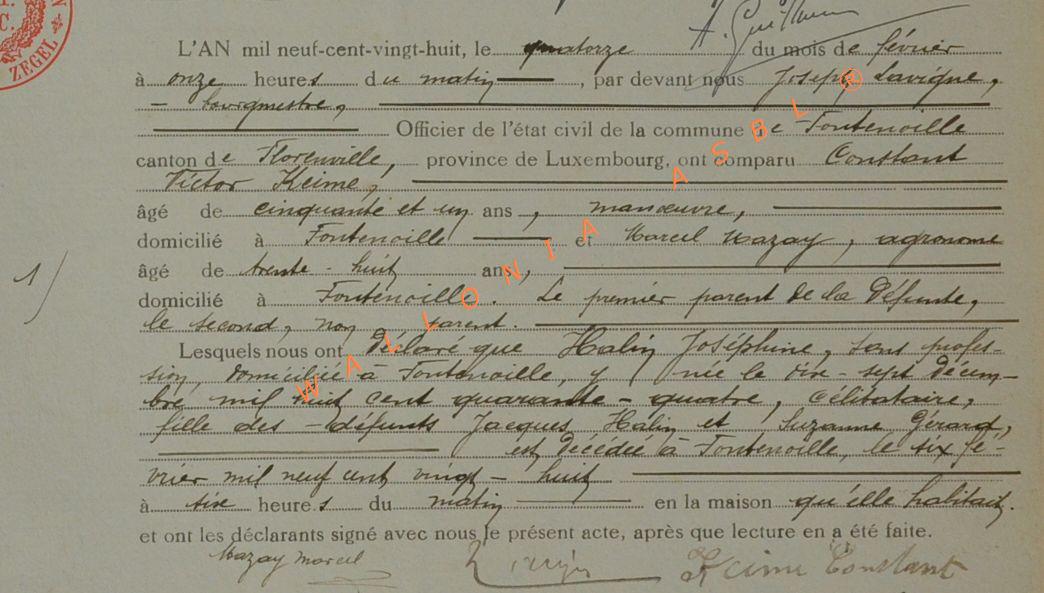 ZEGEL
L'AN mil neuf-cent-vingt-huit, le quatorze du mois de février
à onze heures du matin, par devant nous Joseph Lavigne,
bourgmestre,
Officier de l'état civil de la commune de Fontenoille
canton de Florenville, province de Luxembourg, ont comparu Constant
Victor Keime,
âgé de cinquante et un ans, manœuvre,
domicilié à Fontenoille et Marcel Mazay, agronome
âgé de trente-huit ans,
domicilié à Fontenoille. Le premier parent de la défunte,
le second, non parent.
1/
Lesquels nous ont déclaré que Halin Joséphine, sans profes-
sion, domiciliée à Fontenoille, y née le dix-sept décem-
bre mil huit cent quarante-quatre, célibataire,
fille des défunts Jacques Halin et Suzanne Gérard,
est décédée à Fontenoille, le six fé-
vrier mil neuf cent vingt-huit
à six heures du matin en la maison qu'elle habitait.
et ont les déclarants signé avec nous le présent acte, après que lecture en a été faite.
Mazay Marcel Keime Constant
WALLONIA ASBL ®